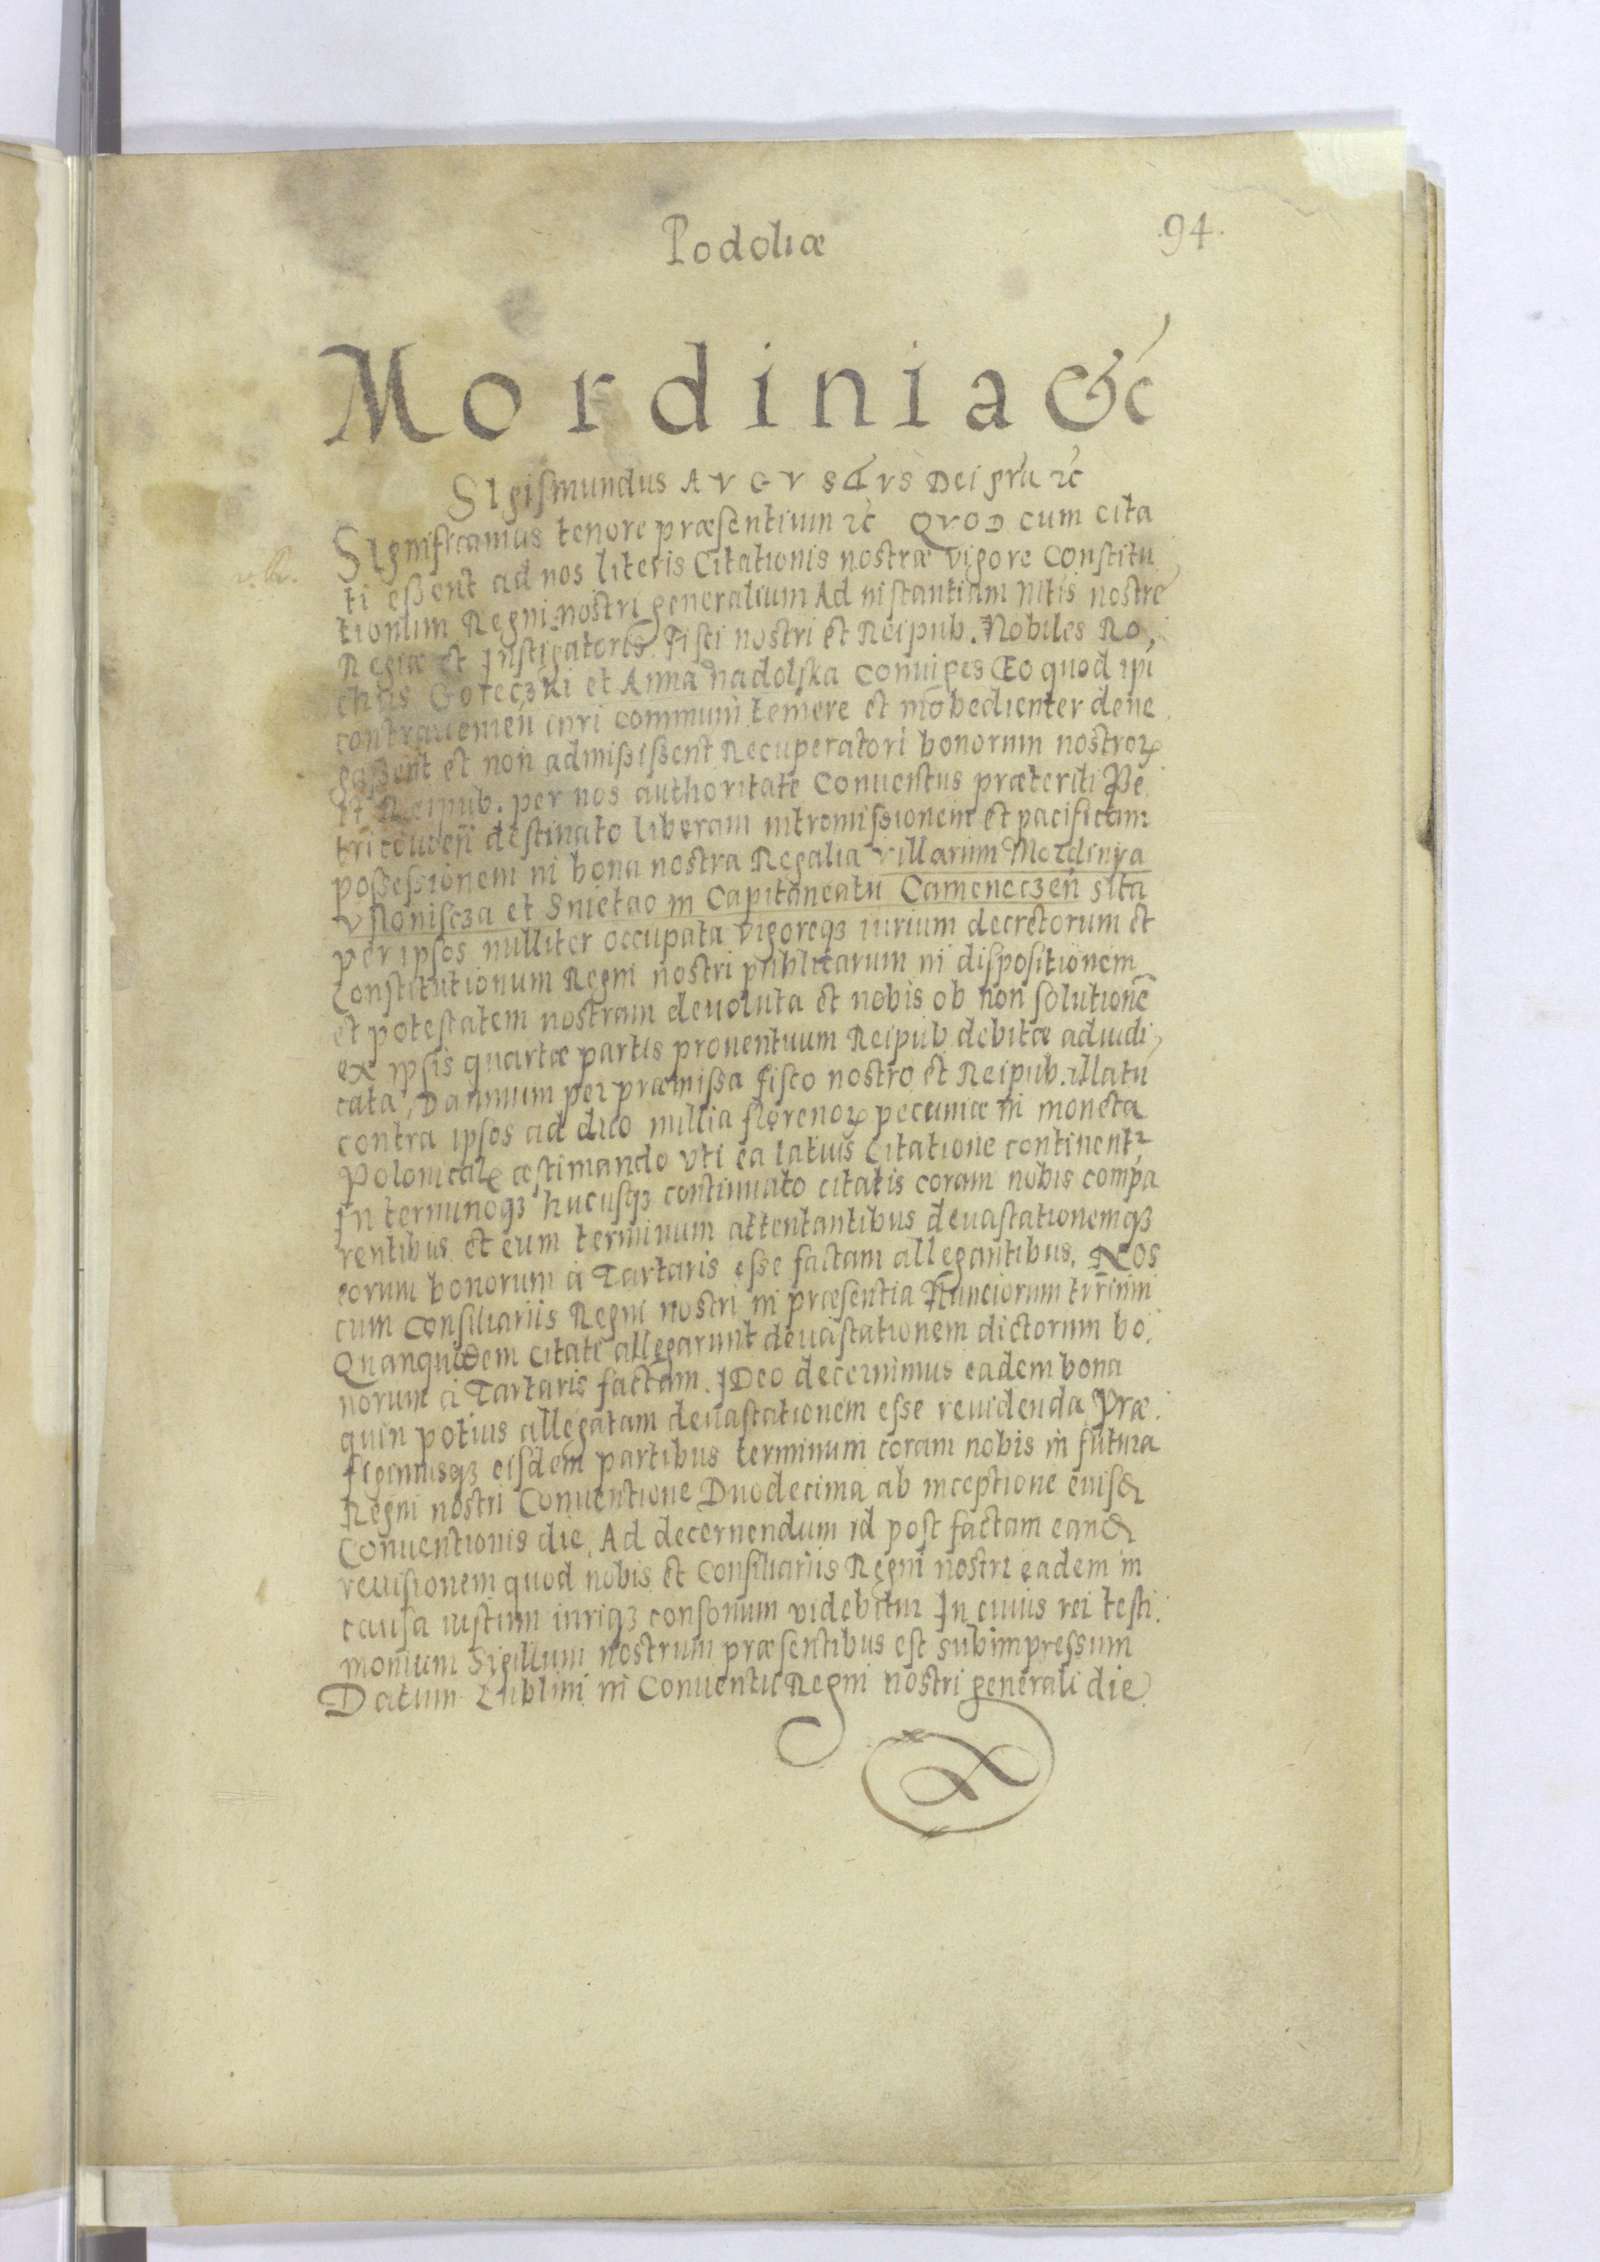 Podoliæ
.94.
Mordinia &c
Sigismundus AVGVSTVS Dei gra̅ ꝛc̄
Significamus tenore præsentium ꝛc̄ QVOD cum cita
ti eßent ad nos literis Citationis nostræ vigore Constitu
tionum Regni nostri generalium Ad instantiam Mtis nostre
Regiæ et Instigatoris Fisci nostri et Reipub. Nobiles Ro,
chus Goreczki et Anna Nadolska Coniuges Eo quod ipi
contrauenien̄ iuri communi temere et inobedienter dene
gaßent et non admisissent Recuperatori bonorum nostroꝝ
et Reipub. per nos authoritate Conuentus præteriti Pe
tricouien̄ destinato liberam intromissionem et pacificam
possessionem in bona nostra Regalia villarum Mordinya
et Snietao in Capitaneatu Cameneczen̄ sita
per ipsos nulliter occupata vigoreqꝫ iurium decretorum et
Constitutionum Regni nostri publicarum in dispositionem
et potestatem nostram deuoluta et nobis ob non solutione̅
ex ipsis quartæ partis prouentuum Reipub debitæ adiudi,
cata, Damnum per præmissa fisco nostro et Reipub. illatu
contra ipsos ad duo millia florenoꝝ pecuniæ in moneta
Polonicali æstimando vti ea latius Citatione continentr
In terminoqꝫ hucusqꝫ continuato citatis coram nobis compa
rentibus et eum terminum attentantibus deuastationemqꝫ
eorum bonorum a Tartaris esse factam allegantibus. Nos
cum Consiliariis Regni nostri in præsentia Nunciorum trr̄nm̄
Quanquidem citati allegarunt deuastationem dictorum bo.
norum a Tartaris factam. IDeo decernimus eadem bona
quin potius allegatam deuastationem esse reuidenda Præ.
figimusqꝫ eisdem partibus terminum coram nobis in futura
Regni nostri Conuentione Duodecima ab inceptione eiusꝺ
Conuentionis die, Ad decernendum id post factam eanꝺ
reuisionem quod nobis et Consiliariis Regni nostri eadem in
causa iustum iuriqꝫ consonum videbitur In cuius rei testi.
monium Sigillum nostrum præsentibus est subimpressum
Datum Lublini in Conuentu Regni nostri generali die